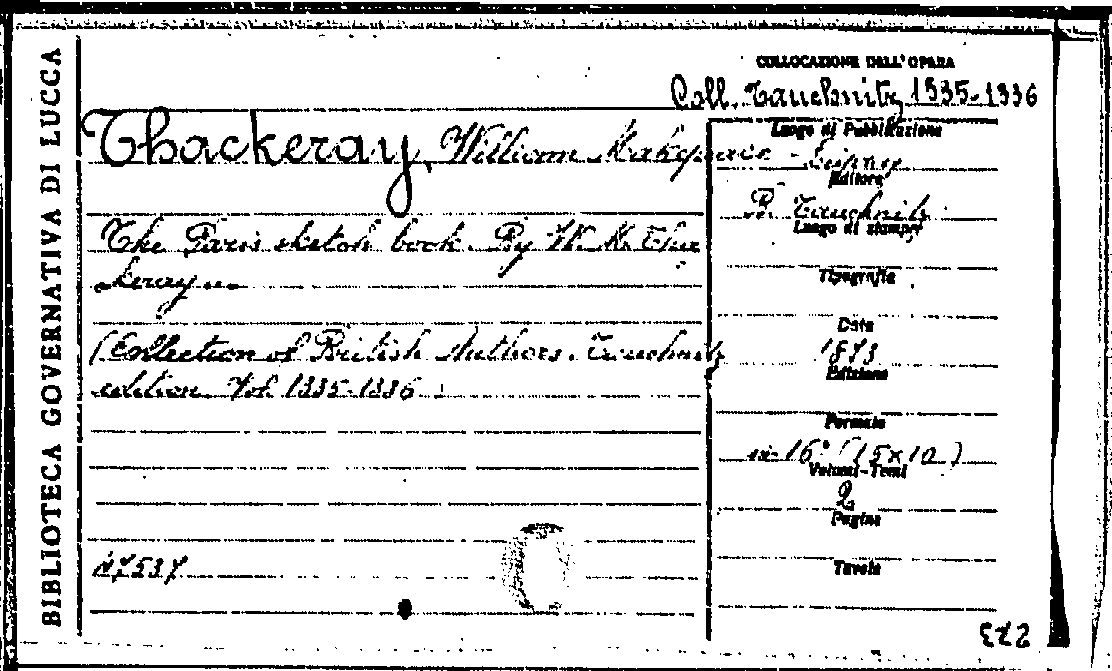 BIBLIOTECA GOVERNATIVA DI LUCCA
COLLOCAZIONE DELL'OPERA
Coll. Tauchnitz 1335-1336
Thackeray, William Makepeace
The Paris sketch book. By W. M. Thac
keray...
(Collection of British Authors. Tauchnitz
edition. Vol. 1335-1336.
Luogo di Pubblicazione
Leipzig
Editore
B. Tauchnitz
Luogo di stampa
Tipografia
Data
1873
Edizione
Formato
in-16° (15×10)
Volumi-Tomi
2
Pagine
Tavole